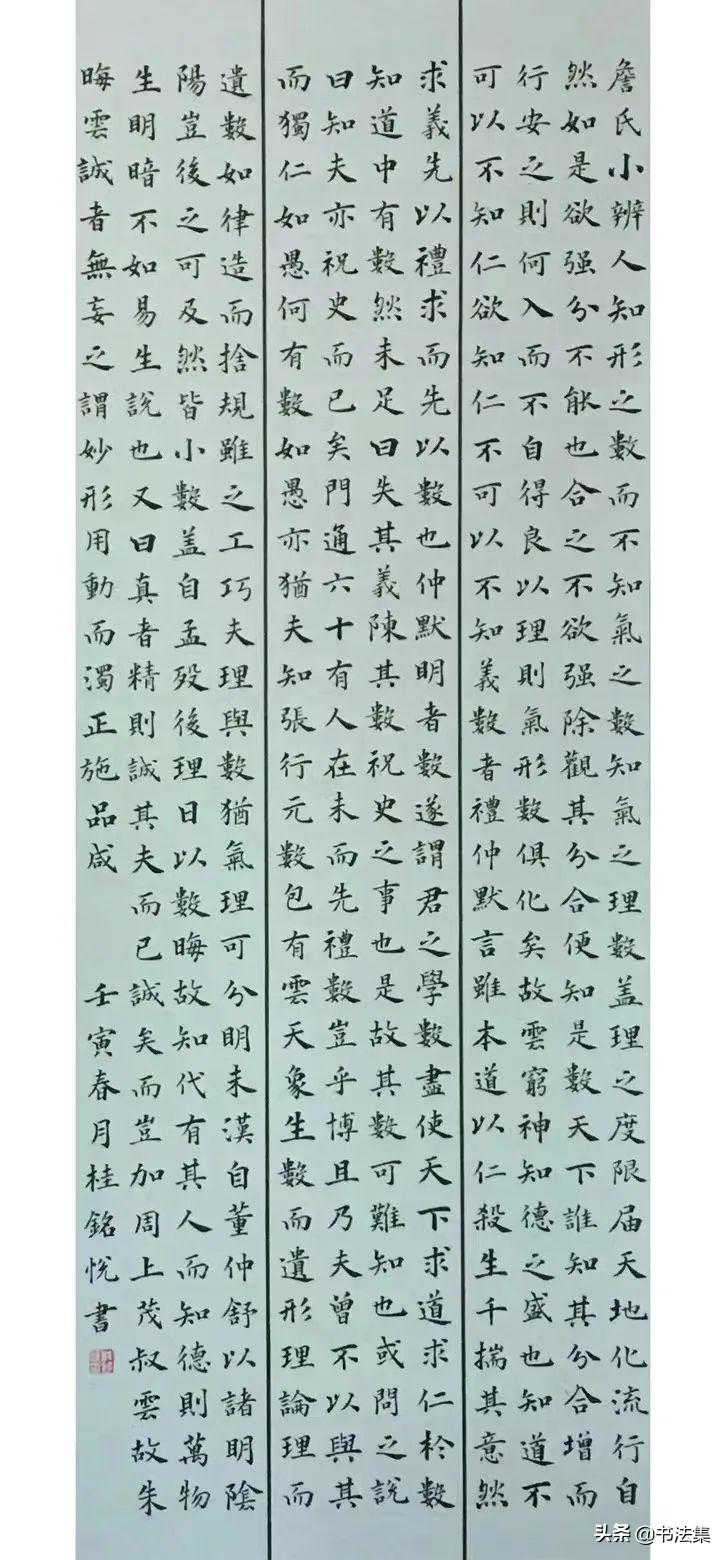 詹氏小辨人知形之數而不知氣之數知氣之理數盖理之度限届天地化流行自
然如是欲强分不能也合之不欲强除觀其分合便知是數天下誰知其分合增而
行安之則何入而不自得良以理則氣形數俱化矣故雲窮神知德之盛也知道不
可以不知仁欲知仁不可以不知義數者禮仲默言雖本道以仁殺生千揣其意然
求義先以禮求而先以數也仲默明者數遂謂君之學數盡使天下求道求仁於數
知道中有數然未足曰失其義陳其數祝史之事也是故其數可難知也或問之說
曰知夫亦祝史而已矣門通六十有人在未而先禮數豈乎博且乃夫曾不以與其
而獨仁如愚何有數如愚亦猶夫知張行元數包有雲天象生數而遺形理論理而
遺數如律造而捨規雖之工巧夫理與數猶氣理可分明未漢自董仲舒以諸明陰
陽豈後之可及然皆小數盖自孟歿後理日以數晦故知代有其人而知德則萬物
生明暗不如易生說也又曰真者精則誠其夫而已誠矣而豈加周上茂叔雲故朱
晦雲誠者無妄之謂妙形用動而濁正施品咸 壬寅春月桂銘悅書
头条 @书法集